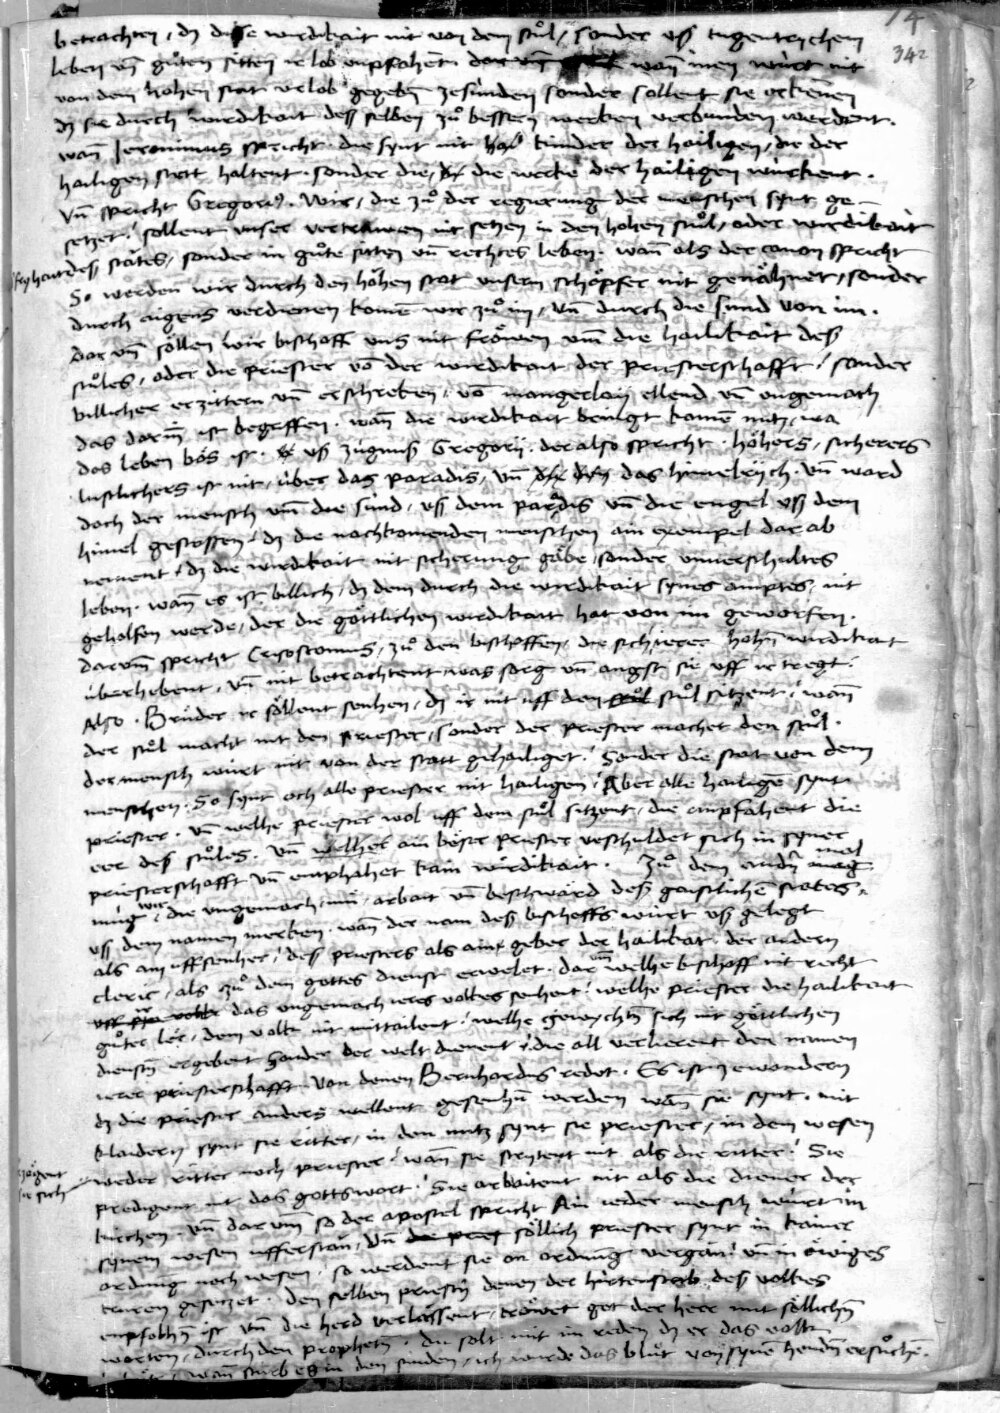 14
342
betrachten, dz dise wirdikait nit von dem stůl, sonder uss tugentrychem
leben vn̄ gůten sitten ir lob enpfahen. wan̄ inen würt nit
von dem hohen stat urlob gegebē zesünden sonder sollent sie erkēnen
dz sie durch wirdikait dess selben zů bessern werken verbunden werdent.
wan̄ Jeronimus spricht. die synt nit kinder der hailigen, die der
hailigen stett haltent. sonder die, die werke der hailigen würkent.
Vn̄ spricht Gregoriꝰ. Wir, die zů der regierung der menschen synt ge
setzet, sollent unser vertrawen nit setzen in den hohen stůl, oder wirdikait
dess states, sonder in gůte sitten vn̄ rechtes leben. wan̄ als der canon spricht
So werden wir durch den hohen stat unserm schöpfer nit genähnet, sonder
durch aigens verdienen komē wir zů im, vn̄ durch die sünd von im.
Dar vm̄ söllen wir bischoff uns nit fröwen vm̄ die hailikait dess
stůles, oder die priester vō der wirdikait der priesterschafft, sonder
billicher erzittern vn̄ erschreken, vō mangerlaÿ ellend vn̄ ungemach
das darin̄ ist begriffen. wan̄ die wirdikait bringt kainē nutz, wa
das leben bös ist. uss zügniss Gregorij. der also spricht. höhers, sicherers
lustlichers ist nit, über das paradis, vn̄ das himelrÿch. vn̄ ward
doch der mensch vm̄ die sünd, uss dem paradis vn̄ die engel uss dem
himel gestossen, dz die nachkomenden menschen ain exempel dar ab
nement, dz die wirdikait nit sicherung gäbe, sonder unverschultes
leben. wan̄ es ist billich, dz dem durch die wirdikait synes amptes, nit
geholfen werde, der die göttlichen wirdikait hat von im geworfen.
darvm̄ spricht Crisostomus, zů den bischoffen, die sich irer hohē wirdikait
überhebent, vn̄ nit betrachtent was sorg vn̄ angst sie uff ir tregt.
Also. Brüder ir söllent senhen, dz ir nit uff dem stůl sitzent, wan̄
der stůl macht nit den priester, sonder der priester machet den stůl.
der mensch würt nit von der statt gehailiget. Sonder die stat von dem
menschen. So synt och alle priester nit hailigen, Aber alle hailigē synt
priester. vn̄ welhe priester wol uff dem stůl sitzent, die enpfahent die
eer dess stůles. vn̄ welher ain böser priester verschuldet sich in syner
priesterschafft vn̄ emphahet kain wirdikait. Zů dem mal
müg wir, die ungemach, arbait vn̄ beschwärd dess gaistlichē states,
uss dem namen merken. wan̄ der nam dess bischoffs würt uss gelegt
als ain uffsenher, dess priesters als ain geber der hailikait. der andern
cleric, als zů dem gottes dienst erwelet. dar vm̄ welhe bischoff nit recht
das ungemach ires volkes senhent, welhe priester die hailikait
gůter ler, dem volk nit mittailent, welhe sich nit göttlichen
dienstē ergebent sonder der welt dienent, die all verlierent den namen
irer priesterschafft. von denen Bernhardus redet. Es ist zewondern
dz die priester anders wellent gesenhē werden wan̄ sie synt. mit
klaidern synt sie ritter, in dem nutz synt sie priester, in dem wesen
weder ritter noch priester, wan̄ sie strÿtent nit als die ritter, Sie
predigent nit das gottswort. Sie arbaitent nit als die diener der
kirchen. vn̄ dar vm̄ so der apostel spricht Ain ieder mensch würt in
synem wesen ufferstan, vn̄ söllich priester synt in kainer
ordnung noch wesen, so werdent sie on ordnung vergan, vn̄ in ewiges
truren gesetzet. den selben priestern denen der hirtenstab dess volkes
enpfolhē ist vn̄ die herd verlassent, tröwet got der herr mit söllichē
worten, durch den prophetē. du solt mit im reden dz er das volk
wan̄ stirb es in den sünden, ich würde das blůt von synē hendē ersůchē.
zögent
sie sich